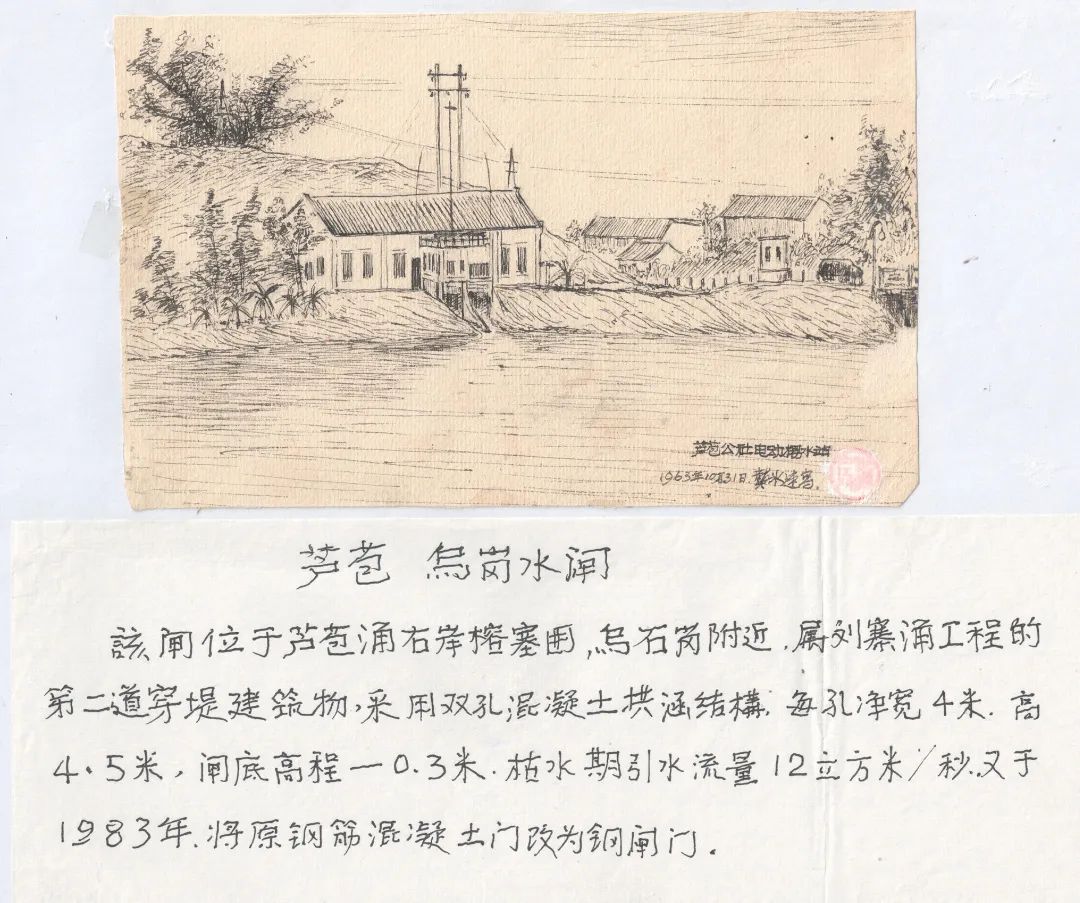 芦苞公社电动排水站
1963年10月31日.
芦苞 烏岗水闸
該闸位于芦苞涌右岸榕塞围,烏石岗附近.属刘寨涌工程的
第二道穿堤建筑物,采用双孔混凝土拱涵结構.每孔净宽4米.高
4.5米,闸底高程一0.3米.枯水期引水流量12立方米/秒.又于
1983年.将原钢筋混凝土门改为钢闸门.